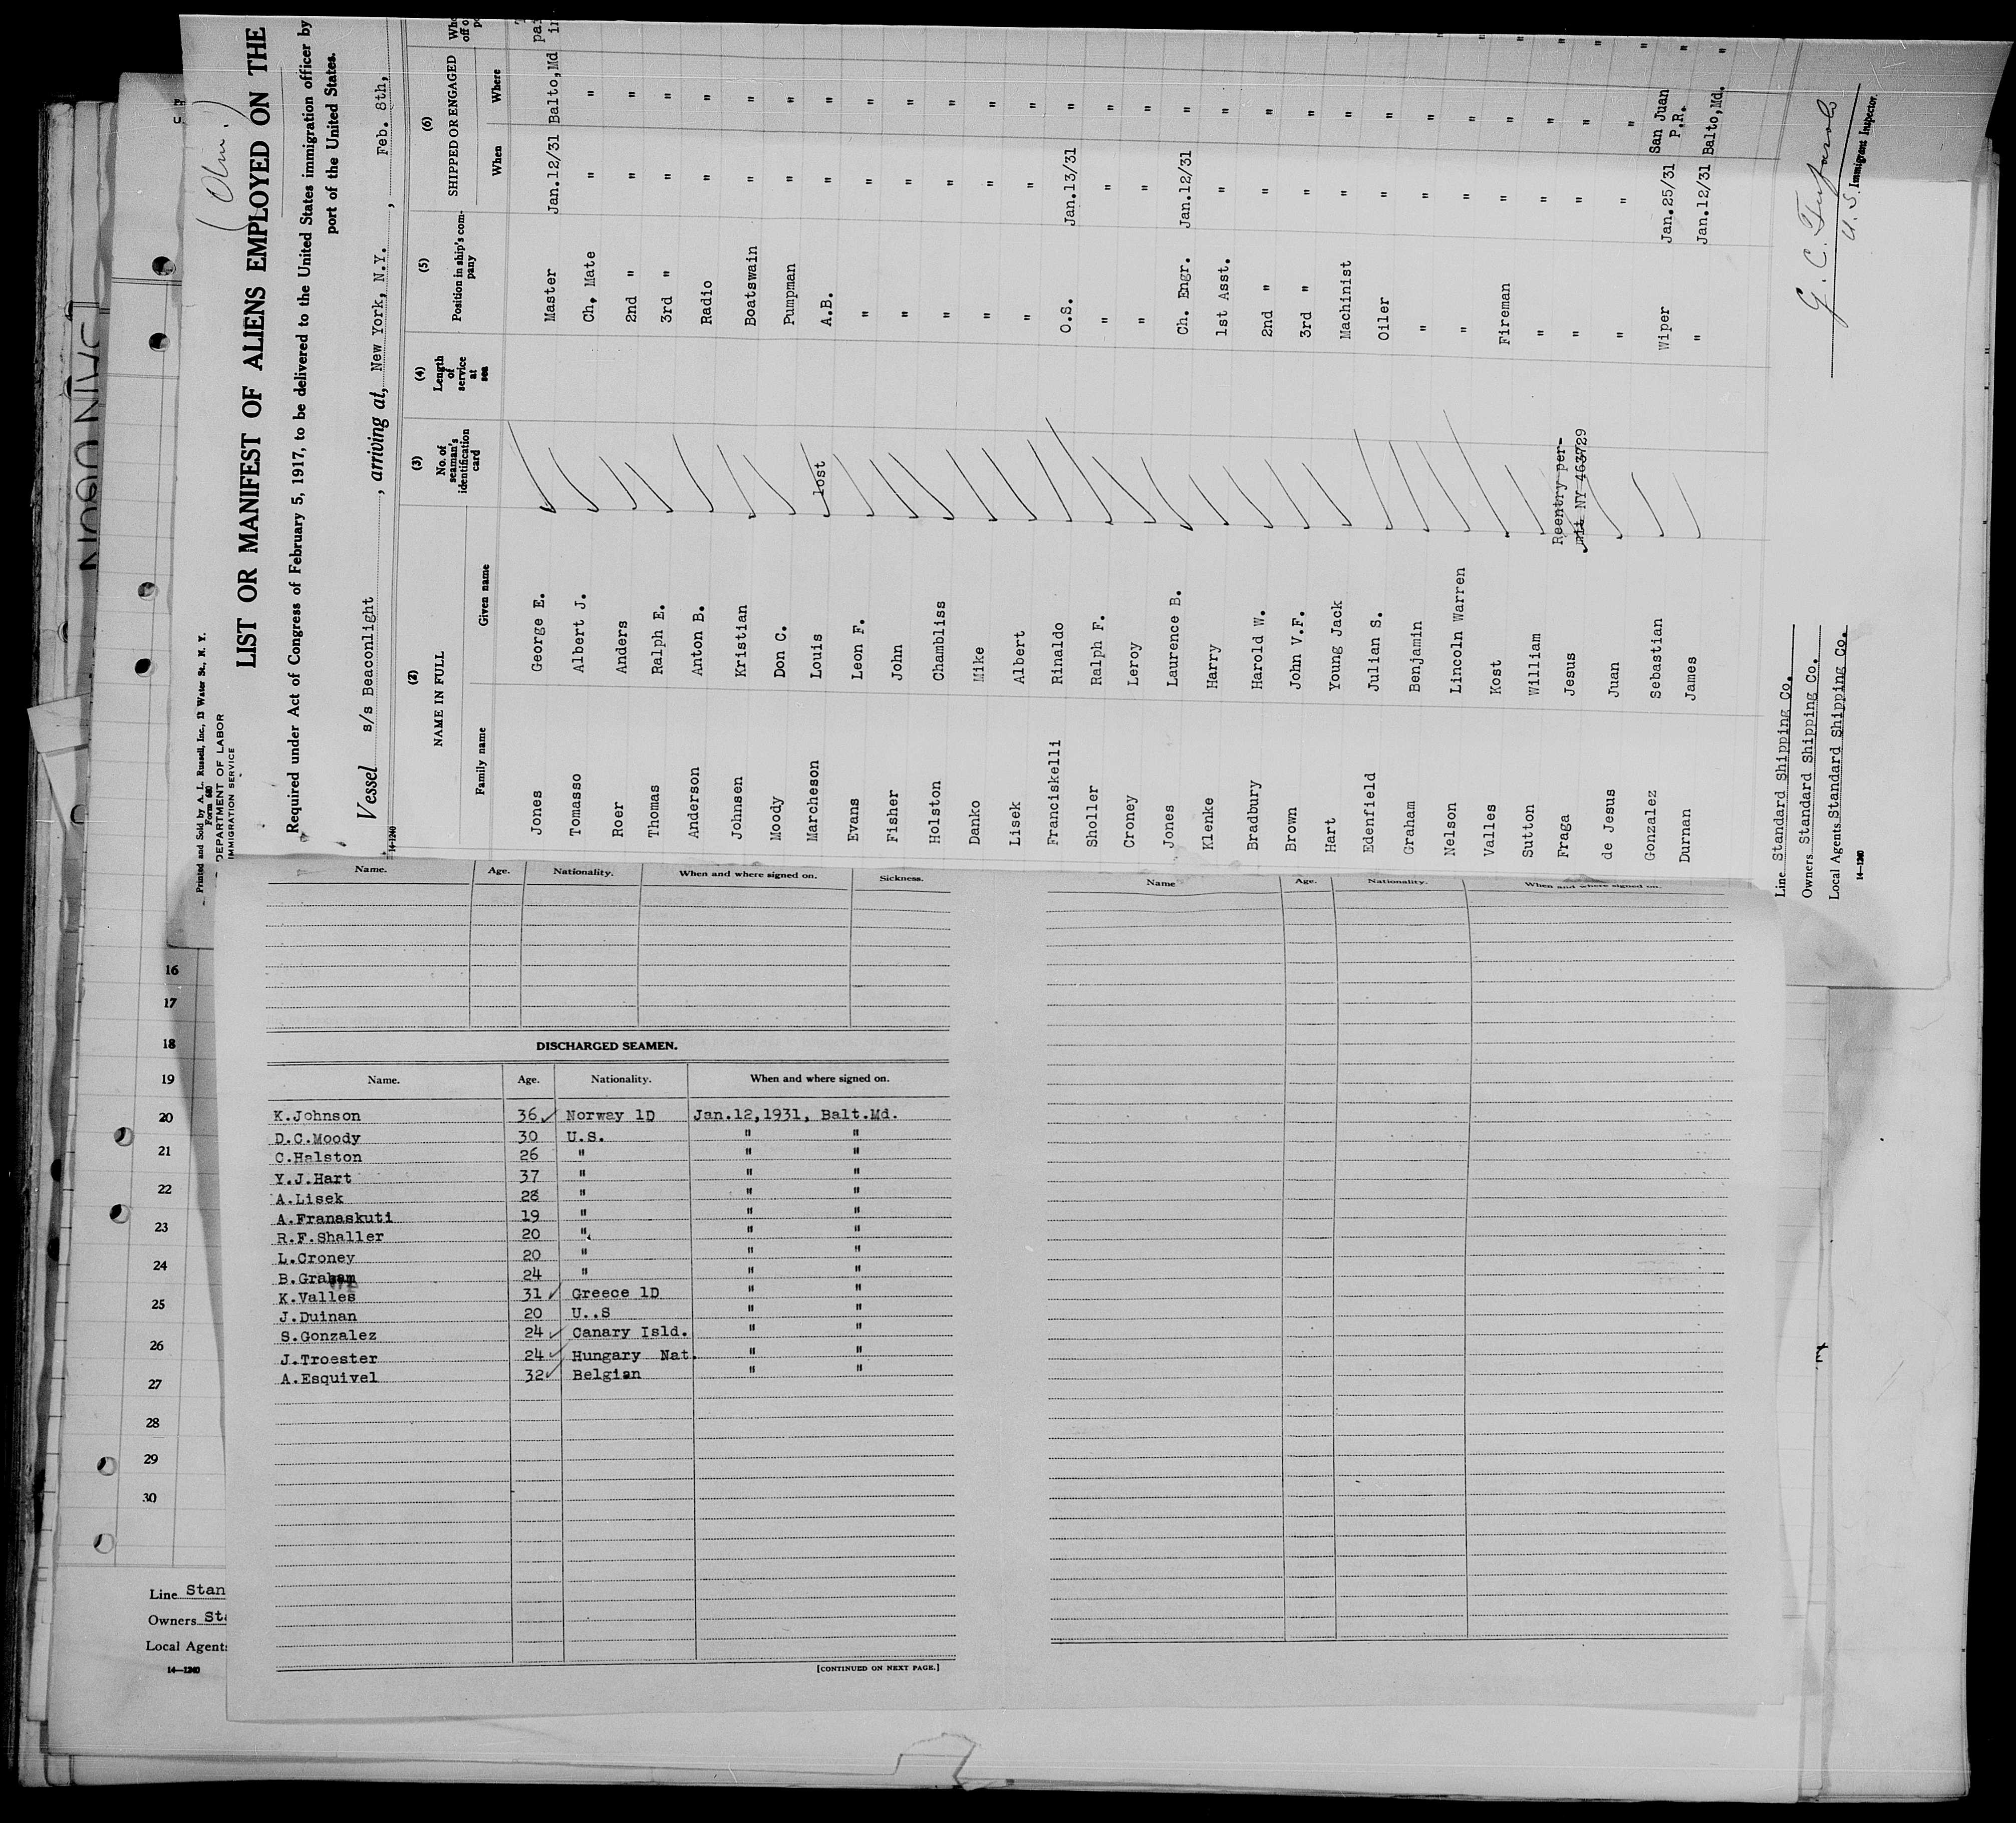 Printed and Sold by A. L. Russell, Inc., 13 Water St., N. Y.
Form 680
DEPARTMENT OF LABOR
IMMIGRATION SERVICE
LIST OR MANIFEST OF ALIENS EMPLOYED ON THE
Required under Act of Congress of February 5, 1917, to be delivered to the United States immigration officer by
port of the United States.
Vessel s/s Beaconlight, arriving at, New York, N.Y., Feb. 8th,
14-1240
(2) (3) (4) (5) (6)
NAME IN FULL No. of seaman's identification card Length of service at sea Position in ship's company SHIPPED OR ENGAGED
Family name Given name When Where
Jones George E. Master Jan.12/31 Balto,Md
Tomasso Albert J. Ch. Mate " "
Roer Anders 2nd " " "
Thomas Ralph E. 3rd " " "
Anderson Anton B. Radio " "
Johnsen Kristian Boatswain " "
Moody Don C. Pumpman " "
Marcheson Louis lost A.B. " "
Evans Leon F. " " "
Fisher John " " "
Holston Chambliss " " "
Danko Mike " " "
Lisek Albert " " "
Franciskelli Rinaldo O.S. Jan.13/31 "
Sholler Ralph F. " " "
Croney Leroy " " "
Jones Laurence B. Ch. Engr. Jan.12/31 "
Klenke Harry 1st Asst. " "
Bradbury Harold W. 2nd " " "
Brown John V.F. 3rd " " "
Hart Young Jack Machinist " "
Edenfield Julian S. Oiler " "
Graham Benjamin " " "
Nelson Lincoln Warren " " "
Valles Kost Fireman " "
Sutton William " " "
Fraga Jesus Reentry per-
mit NY 463729 " " "
de Jesus Juan " " "
Gonzalez Sebastian Wiper Jan.25/31 San Juan
P.R.
Durnan James " Jan.12/31 Balto,Md.
Line Standard Shipping Co.
Owners Standard Shipping Co.
Local Agents Standard Shipping Co.
14-1240
U.S. Immigrant Inspector.
Name. Age. Nationality. When and where signed on. Sickness.
Name Age. Nationality. When and where signed on.
DISCHARGED SEAMEN.
Name. Age. Nationality. When and where signed on.
K.Johnson 36 Norway 1D Jan.12,1931, Balt.Md.
D.C.Moody 30 U.S. " "
C.Halston 26 " " "
Y.J.Hart 37 " " "
A.Lisek 28 " " "
A.Franaskuti 19 " " "
R.F.Shaller 20 " " "
L.Croney 20 " " "
B.Graham 24 " " "
K.Valles 31 Greece 1D " "
J.Duinan 20 U..S " "
S.Gonzalez 24 Canary Isld. " "
J.Troester 24 Hungary Nat. " "
A.Esquivel 32 Belgian " "
[CONTINUED ON NEXT PAGE.]
16
17
18
19
20
21
22
23
24
25
26
27
28
29
30
Line Stan
Owners Sta
Local Agents
14-1240